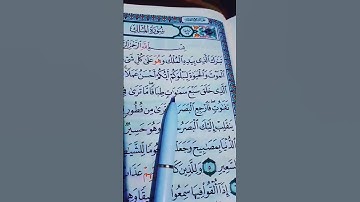 سُورَةُ المُلْكِ
بِسْمِ اللَّهِ الرَّحْمَٰنِ
تَبَٰرَكَ الَّذِي بِيَدِهِ الْمُلْكُ وَهُوَ عَلَىٰ كُلِّ شَيْ
الْمَوْتَ وَالْحَيَوٰةَ لِيَبْلُوَكُمْ أَيُّكُمْ أَحْسَنُ عَمَلًا
الَّذِي خَلَقَ سَبْعَ سَمَٰوَٰتٍ طِبَاقًا مَّا تَرَىٰ فِي
تَفَٰوُتٍ فَارْجِعِ الْبَصَرَ تَرَىٰ مِن فُطُورٍ
يَنقَلِبْ إِلَيْكَ الْبَصَرُ وَهُوَ حَسِيرٌ
الدُّنْيَا بِمَصَٰبِيحَ وَجَعَلْ
السَّعِيرِ ٥ وَلِلَّذِينَ كَ عَذَا
إِذَا أُلْقُوا فِيهَا سَمِعُوا